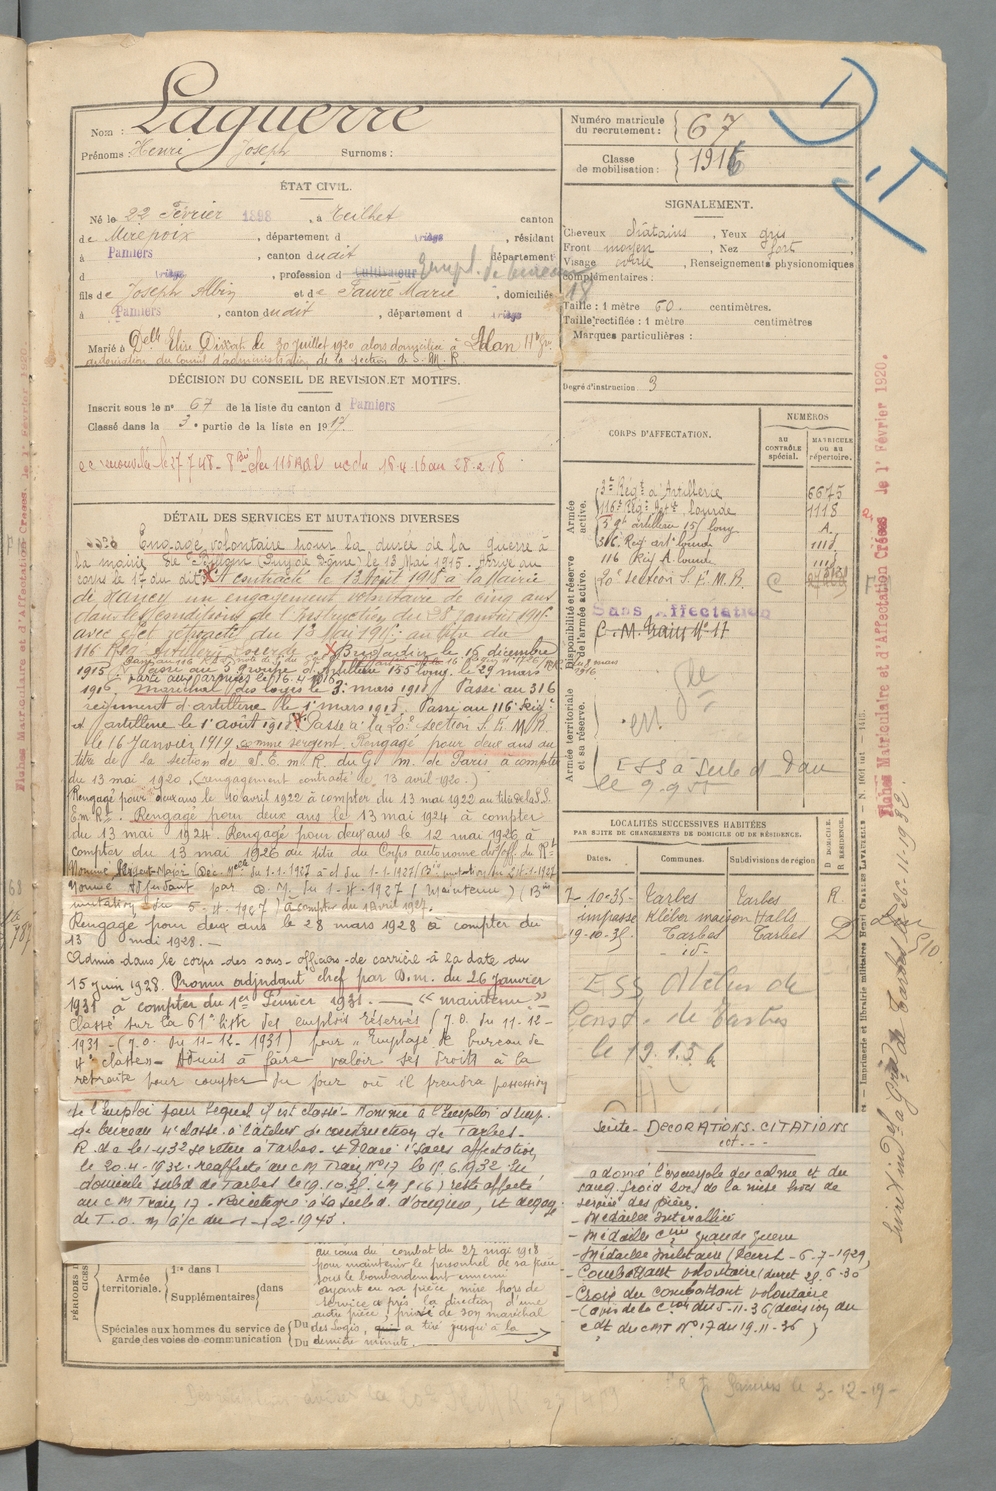 Nom : Laguerre
Prénoms : Henri Joseph Surnoms :
Numéro matricule du recrutement : 67
Classe de mobilisation : 1916
ÉTAT CIVIL.
Né le 22 Février 1898, à Teilhet canton
de Mirepoix, département d Ariège, résidant
à Pamiers, canton dudit département
d Ariège, profession d cultivateur Empl. de bureau
fils de Joseph Albin et de Faure Marie, domiciliés
à Pamiers, canton dudit, département d Ariège
Marié à Delle Elise le 30 juillet 1920 alors domiciliée à Alan
autorisation du Conseil d'administration de la section de S. M. R.
SIGNALEMENT.
Cheveux châtains, Yeux gris
Front moyen, Nez fort
Visage ovale, Renseignements physionomiques
complémentaires :
Taille : 1 mètre 60. centimètres.
Taille rectifiée : 1 mètre centimètres
Marques particulières :
Degré d'instruction 3
DÉCISION DU CONSEIL DE REVISION ET MOTIFS.
Inscrit sous le n° 67 de la liste du canton d Pamiers
Classé dans la 3e partie de la liste en 1917.
CORPS D'AFFECTATION.
NUMÉROS
AU CONTRÔLE spécial.
MATRICULE OU AU RÉPERTOIRE.
Armée active.
3e Régt d'Artillerie 6675
116e Régt Artie lourde 1118
5e gt artillerie 155 long A
316 Rég art lourde 1118
116 Rég A. lourde 1118
Disponibilité et réserve de l'armée active.
20e Section S. E. M. R. C
Sans Affectation
C. M. Train N° 17
Armée territoriale et sa réserve.
DÉTAIL DES SERVICES ET MUTATIONS DIVERSES
Engagé volontaire pour la durée de la guerre à
la mairie de Billom (Puy de Dôme) le 13 Mai 1915. Arrivé au
corps le 17 du dit. A contracté le 13 août 1918 à la Mairie
de Nancy un engagement volontaire de cinq ans
dans les conditions de l'Instruction du janvier
avec effet rétroactif du 13 Mai au titre du
116 Rég Artillerie lourde. Brigadier le 16 décembre
1915, Passé au 5 groupe d'Artillerie 155 long. le 29 mars
1916, maréchal des logis le 3 mars 1918. Passé au 316
régiment d'artillerie le 1er mars 1918. Passé au 116e Régt
d'artillerie le 1er août 1918. Passé à la 20e section S. E. M. R.
le 16 Janvier 1919 comme sergent. Rengagé pour deux ans au
titre de la section de S. E. m. R. du G. m. de Paris à compter
du 13 mai 1920. (rengagement contracté le 13 avril 1920.)
Rengagé pour deux ans le 10 avril 1922 à compter du 13 mai 1922 au titre de la S.S.
E.m R. Rengagé pour deux ans le 13 mai 1924 à compter
du 13 mai 1924. Rengagé pour deux ans le 12 mai 1926 à
compter du 13 mai 1926 au titre du Corps autonome
Nommé Sergent-Major
Nommé Adjudant par D. M. du 1-4-1927 (maintenu)
mutation du 5-4-1927) à compter du 1er Avril 1927.
Rengagé pour deux ans le 28 mars 1928 à compter du
13 mai 1928. —
Admis dans le corps des sous-officiers de carrière à la date du
15 juin 1928. Promu adjudant chef par D.m. du 26 janvier
1931 à compter du 1er Février 1931. — « maintenu »
Classé sur la 61e liste des emplois réservés (J.O. du 11-12-
1931 - (J.O. du 11-12-1931) pour « Employé de bureau de
4e classe » - Admis à faire valoir ses droits à la
retraite pour compter du jour où il prendra possession
de l'emploi pour lequel il est classé - Nommé à l'emploi d'Emp.
de bureau 4e classe à l'atelier de construction de Tarbes -
R.d. le 1-4-32 se retire à Tarbes - Placé « Sans affectation
le 20.4.1932. réaffecté au C M Train N° 17 le 15.6.1932.
domicilié subd de Tarbes le 19.10.35 resté affecté
au C M Train 17 -
de T. O. m a/c du
PÉRIODES D'EXERCICES
Armée territoriale.
1re dans l
Supplémentaires
dans
Spéciales aux hommes du service de garde des voies de communication
Du
Du
au cours du combat du 27 mai 1918
pour maintenir le personnel de sa pièce
sous le bombardement ennemi
ayant eu sa pièce mise hors de
service a pris la direction d'une
autre pièce, privée de son maréchal
des logis, a tiré jusqu'à la
dernière minute.
LOCALITÉS SUCCESSIVES HABITÉES
PAR SUITE DE CHANGEMENTS DE DOMICILE OU DE RÉSIDENCE.
Dates. Communes. Subdivisions de région D DOMICILE. R RÉSIDENCE.
7-10-35- Tarbes Tarbes R
impasse Kléber maison Halls
19-10-35- Tarbes Tarbes D
-id-
ESS Atelier de
Const. de Tarbes
le 19.1.56
Suite - DECORATIONS - CITATIONS
ect...
a donné l'exemple du calme et du
sang froid lors de la mise hors de
service des pièces.
- Médaille Interalliée
- Médaille Cive grande guerre
- Médaille Militaire (décret - 6-7-1929)
- Combattant volontaire (décret 28.6-30
- Croix du combattant volontaire
- (avis de la Con du 5-11-36 (décision du
cdt du CMT N° 17 du 19.11-36)
Fiches Matriculaire et d'Affectation Créées le 1er Février 1920.
Fiches Matriculaire et d'Affectation Créées le 1er Février 1920.
Imprimerie et librairie militaires Henri CHARLES-LAVAUZELLE
Pamiers le 3-12-19-